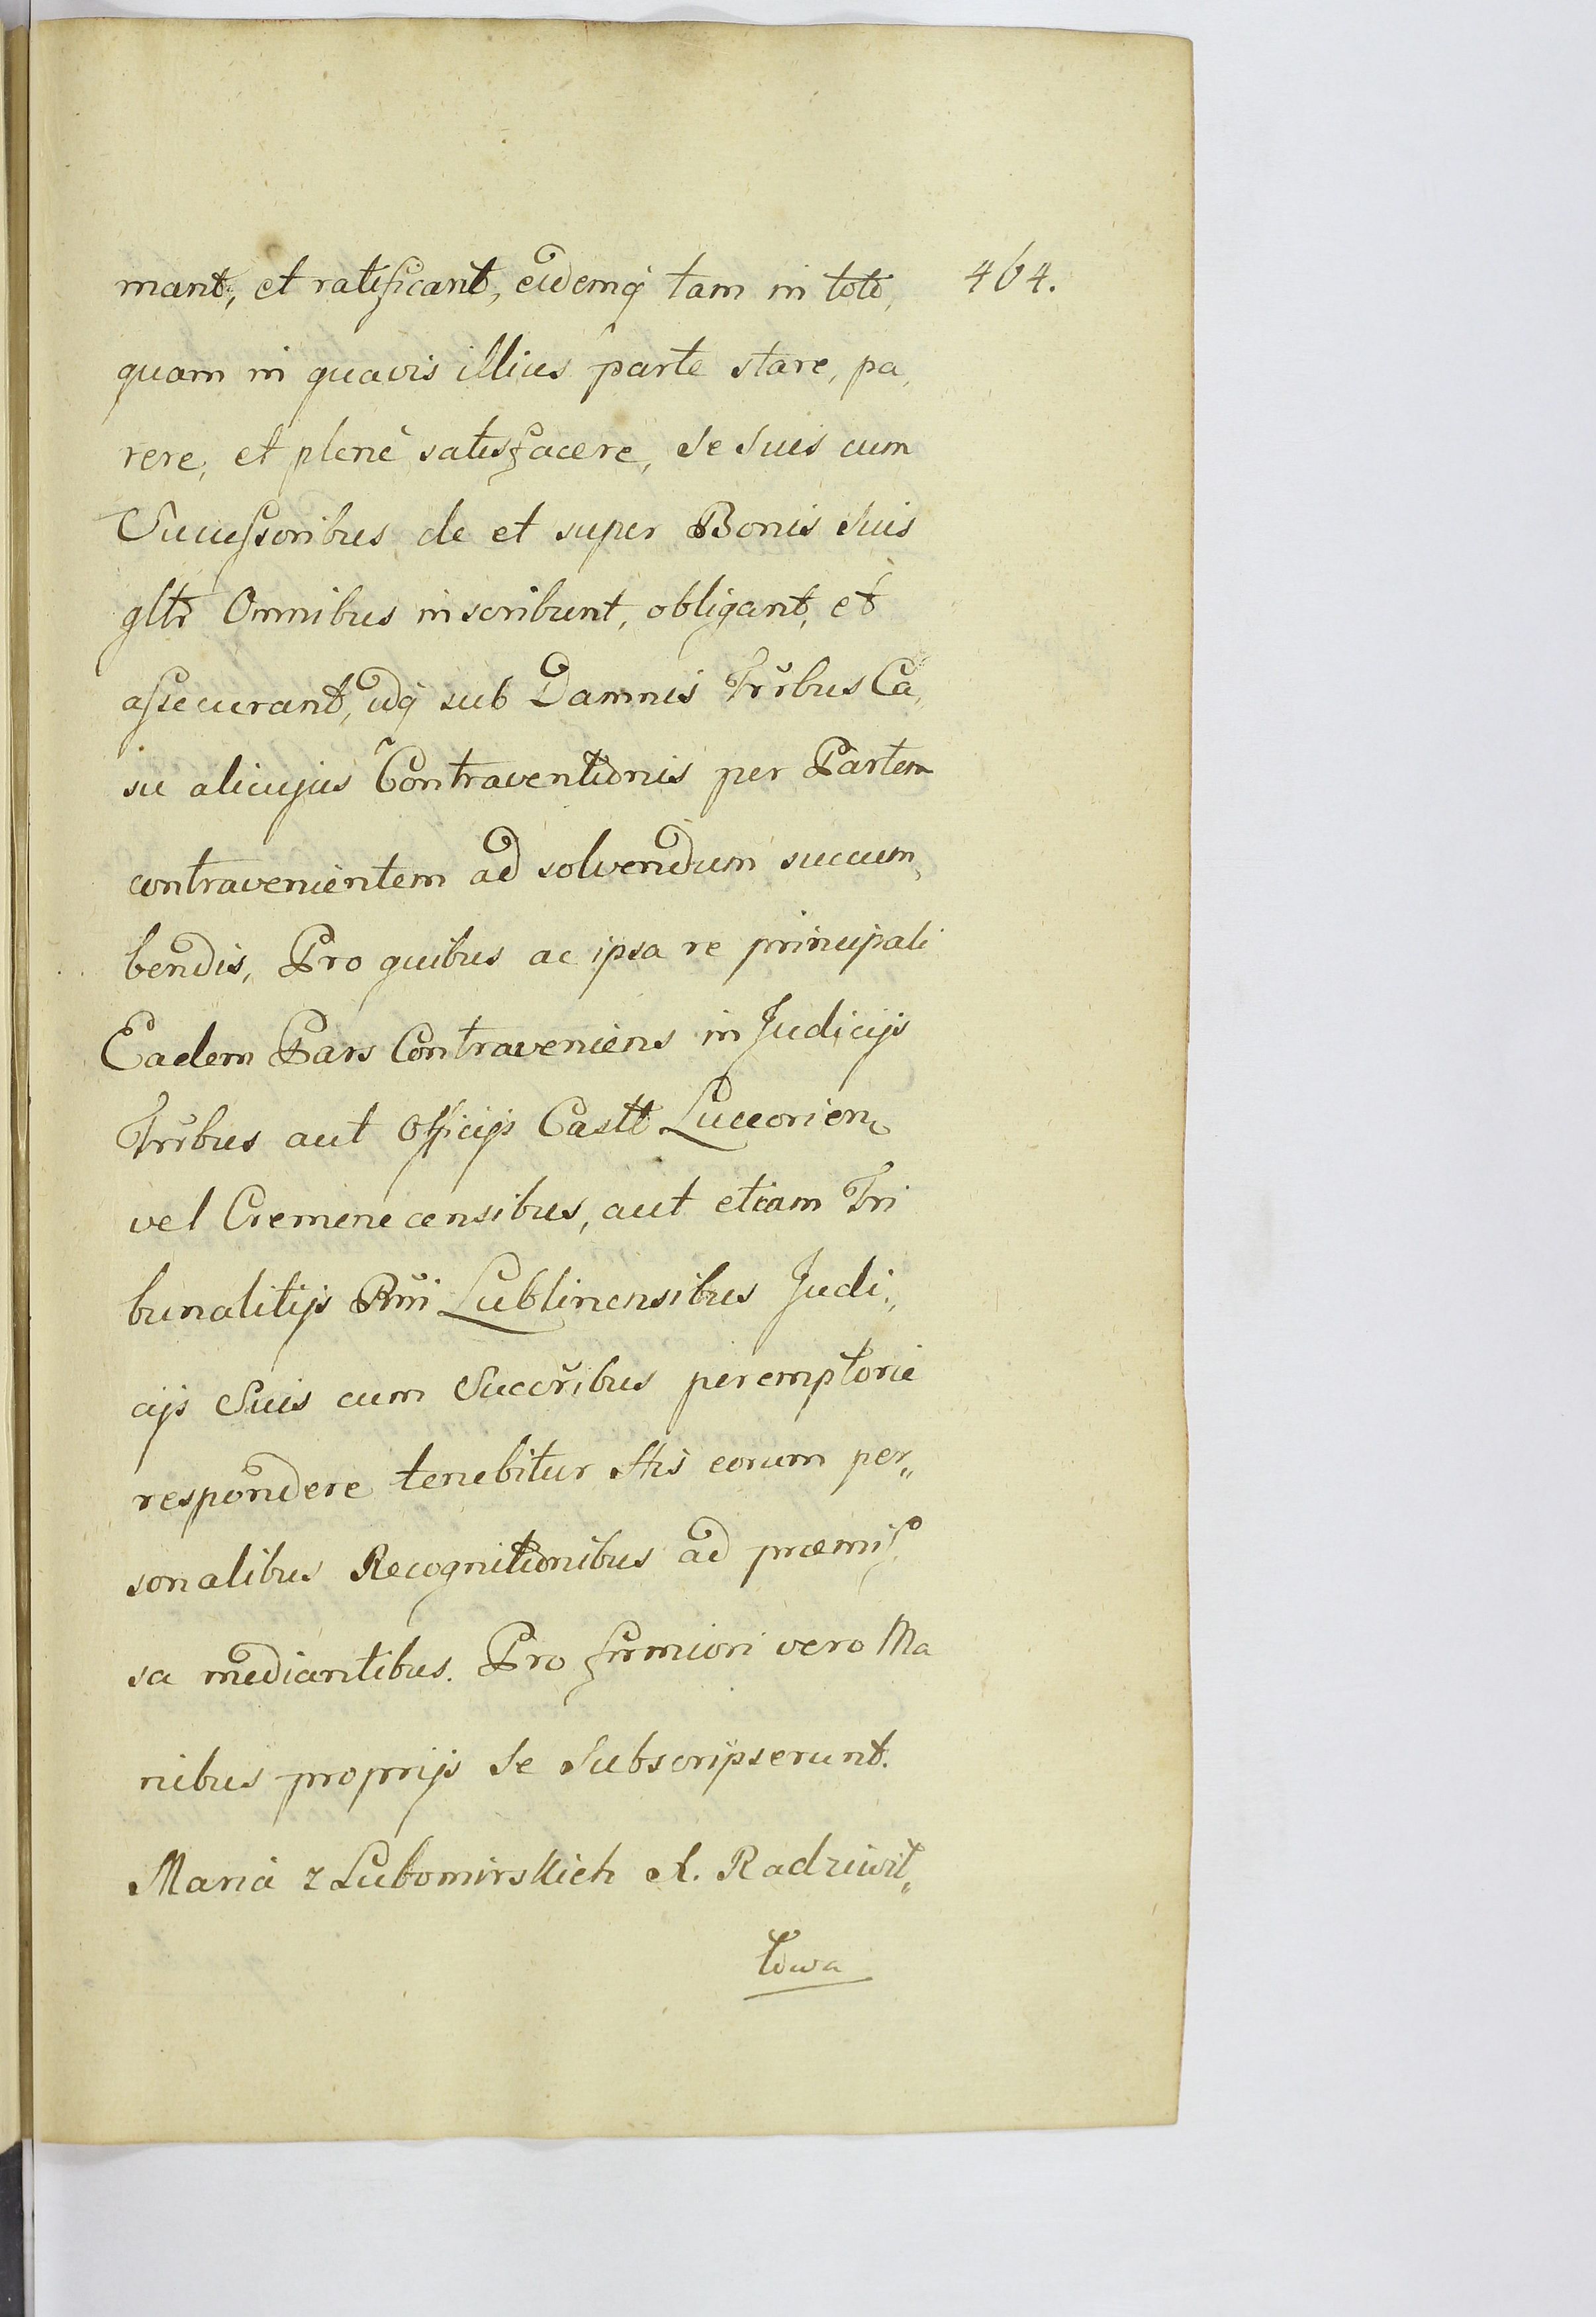 mant, et ratificant, eidemq́ tam in toto,
464.
quam in quavis illius parte stare, pa,
rere, et plenè satisfacere, Se Suis cum
Succeſsoribus de et super Bonis Suis
gltr Omnibus inscribunt, obligant, et
aſsecurant, idq́ sub Damnis Trrbus Ca,
su alicujus Contraventionis per Partem
contravenientem ad solvendum succum,
bendis, Pro quibus ac ipsa re principali
Eadem Pars Contraveniens in Judicijs
Trrbus aut Officijs Castt Luceorien,
vel Cremenecensibus, aut etiam Tri
bunalitijs Rni Lublinensibus Judi,,
cijs Suis cum Succribus peremptorie
respondere tenebitur Stis eorum per,,
sonalibus Recognitionibus ad præmiſ,
sa mediantibus. Pro firmiori vero Ma
nibus proprijs Se Subscripserunt.
Maria z Lubomirskich X. Radziwił,,
łowa